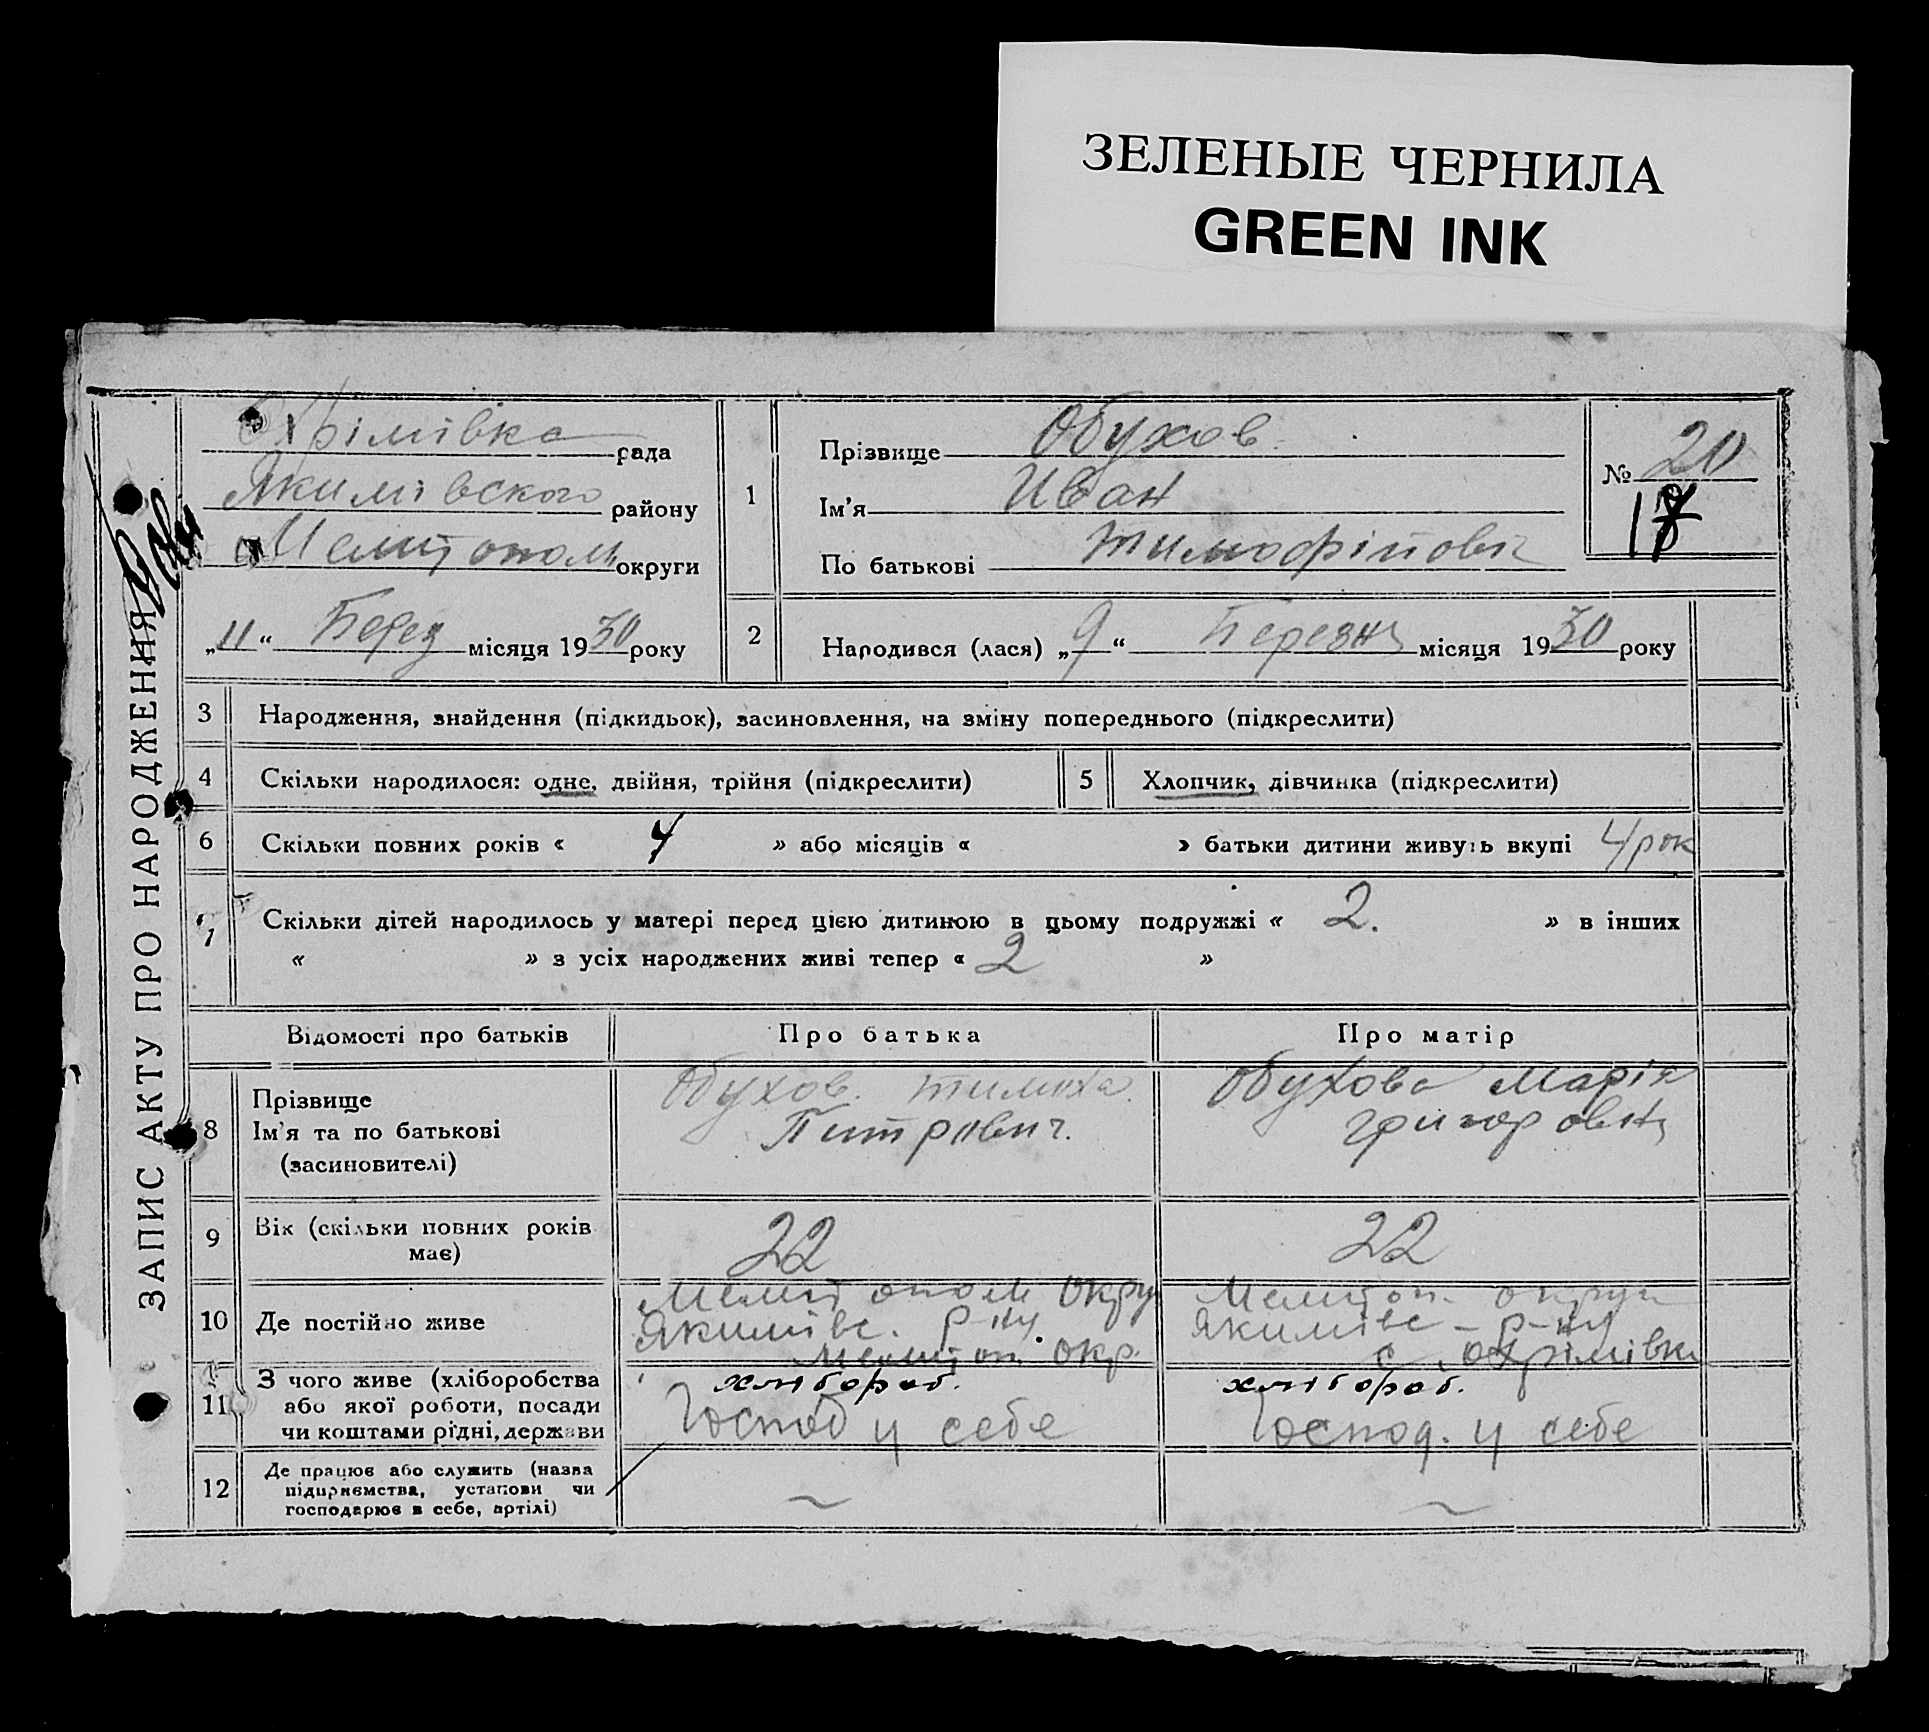 ЗЕЛЕНЫЕ ЧЕРНИЛА
GREEN INK
ЗАПИС АКТУ ПРО НАРОДЖЕННЯ
Охрімівка рада
Якимівского району
Мелитопол округи
„11“ Берез місяця 1930 року
1
Прізвище Обухов
Ім'я Иван
По батькові Тимофійовіч
№ 20
17
2
Народився (лася) „9“ Березня місяця 1930 року
3 Народження, знайдення (підкидьок), засиновлення, на зміну попереднього (підкреслити)
4 Скільки народилося: одне, двійня, трійня (підкреслити)
5 Хлопчик, дівчинка (підкреслити)
6 Скільки повних років « 4 » або місяців « » батьки дитини живуть вкупі 4 рок
7 Скільки дітей народилось у матері перед цією дитиною в цьому подружжі « 2. » в інших
« » з усіх народжених живі тепер « 2 »
Відомості про батьків Про батька Про матір
8 Прізвище
Ім'я та по батькові
(засиновителі)
Обухов. Тимоха
Питрович.
Обухова Марія
Григоровна
9 Вік (скільки повних років
має)
22
22
10 Де постійно живе
Мелитополь Окру
Якимівс. р-ну
Мелитоп. окр.
Мелитоп. округи
Якимівс - р-ну
с. Охрімівка
11 З чого живе (хліборобства
або якої роботи, посади
чи коштами рідні, держави
хлібороб.
Господ у себе
хлібороб.
Господ. у себе
12 Де працює або служить (назва
підприємства, установи чи
господарює в себе, артілі)